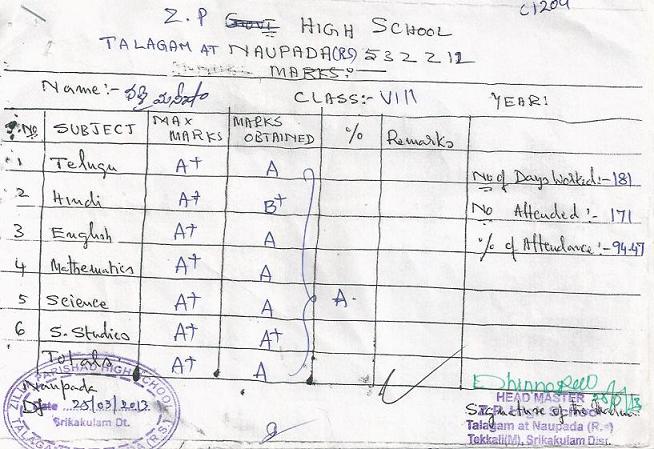 C1204
Z.P Govt HIGH SCHOOL
TALAGAM AT NAUPADA(RS) 532212
MARKS:-
Name:- CLASS:- VIII YEAR:
S.No SUBJECT MAX MARKS MARKS OBTAINED % Remarks
1 Telugu A+ A
No of Days Worked:- 181
2 Hindi A+ B+
No Attended:- 171
3 English A+ A
% of Attendance:- 94.47
4 Mathematics A+ A
5 Science A+ A A.
6 S. Studies A+ A+
Totals A+ A
ZILLA PARISHAD HIGH SCHOOL
Naupada
Dt Date ...25/03/2013
Srikakulam Dt.
TALAGAM (R.S.)
HEAD MASTER
Signature of the
Talagam at Naupada (R.S)
Tekkali(M), Srikakulam Dist.